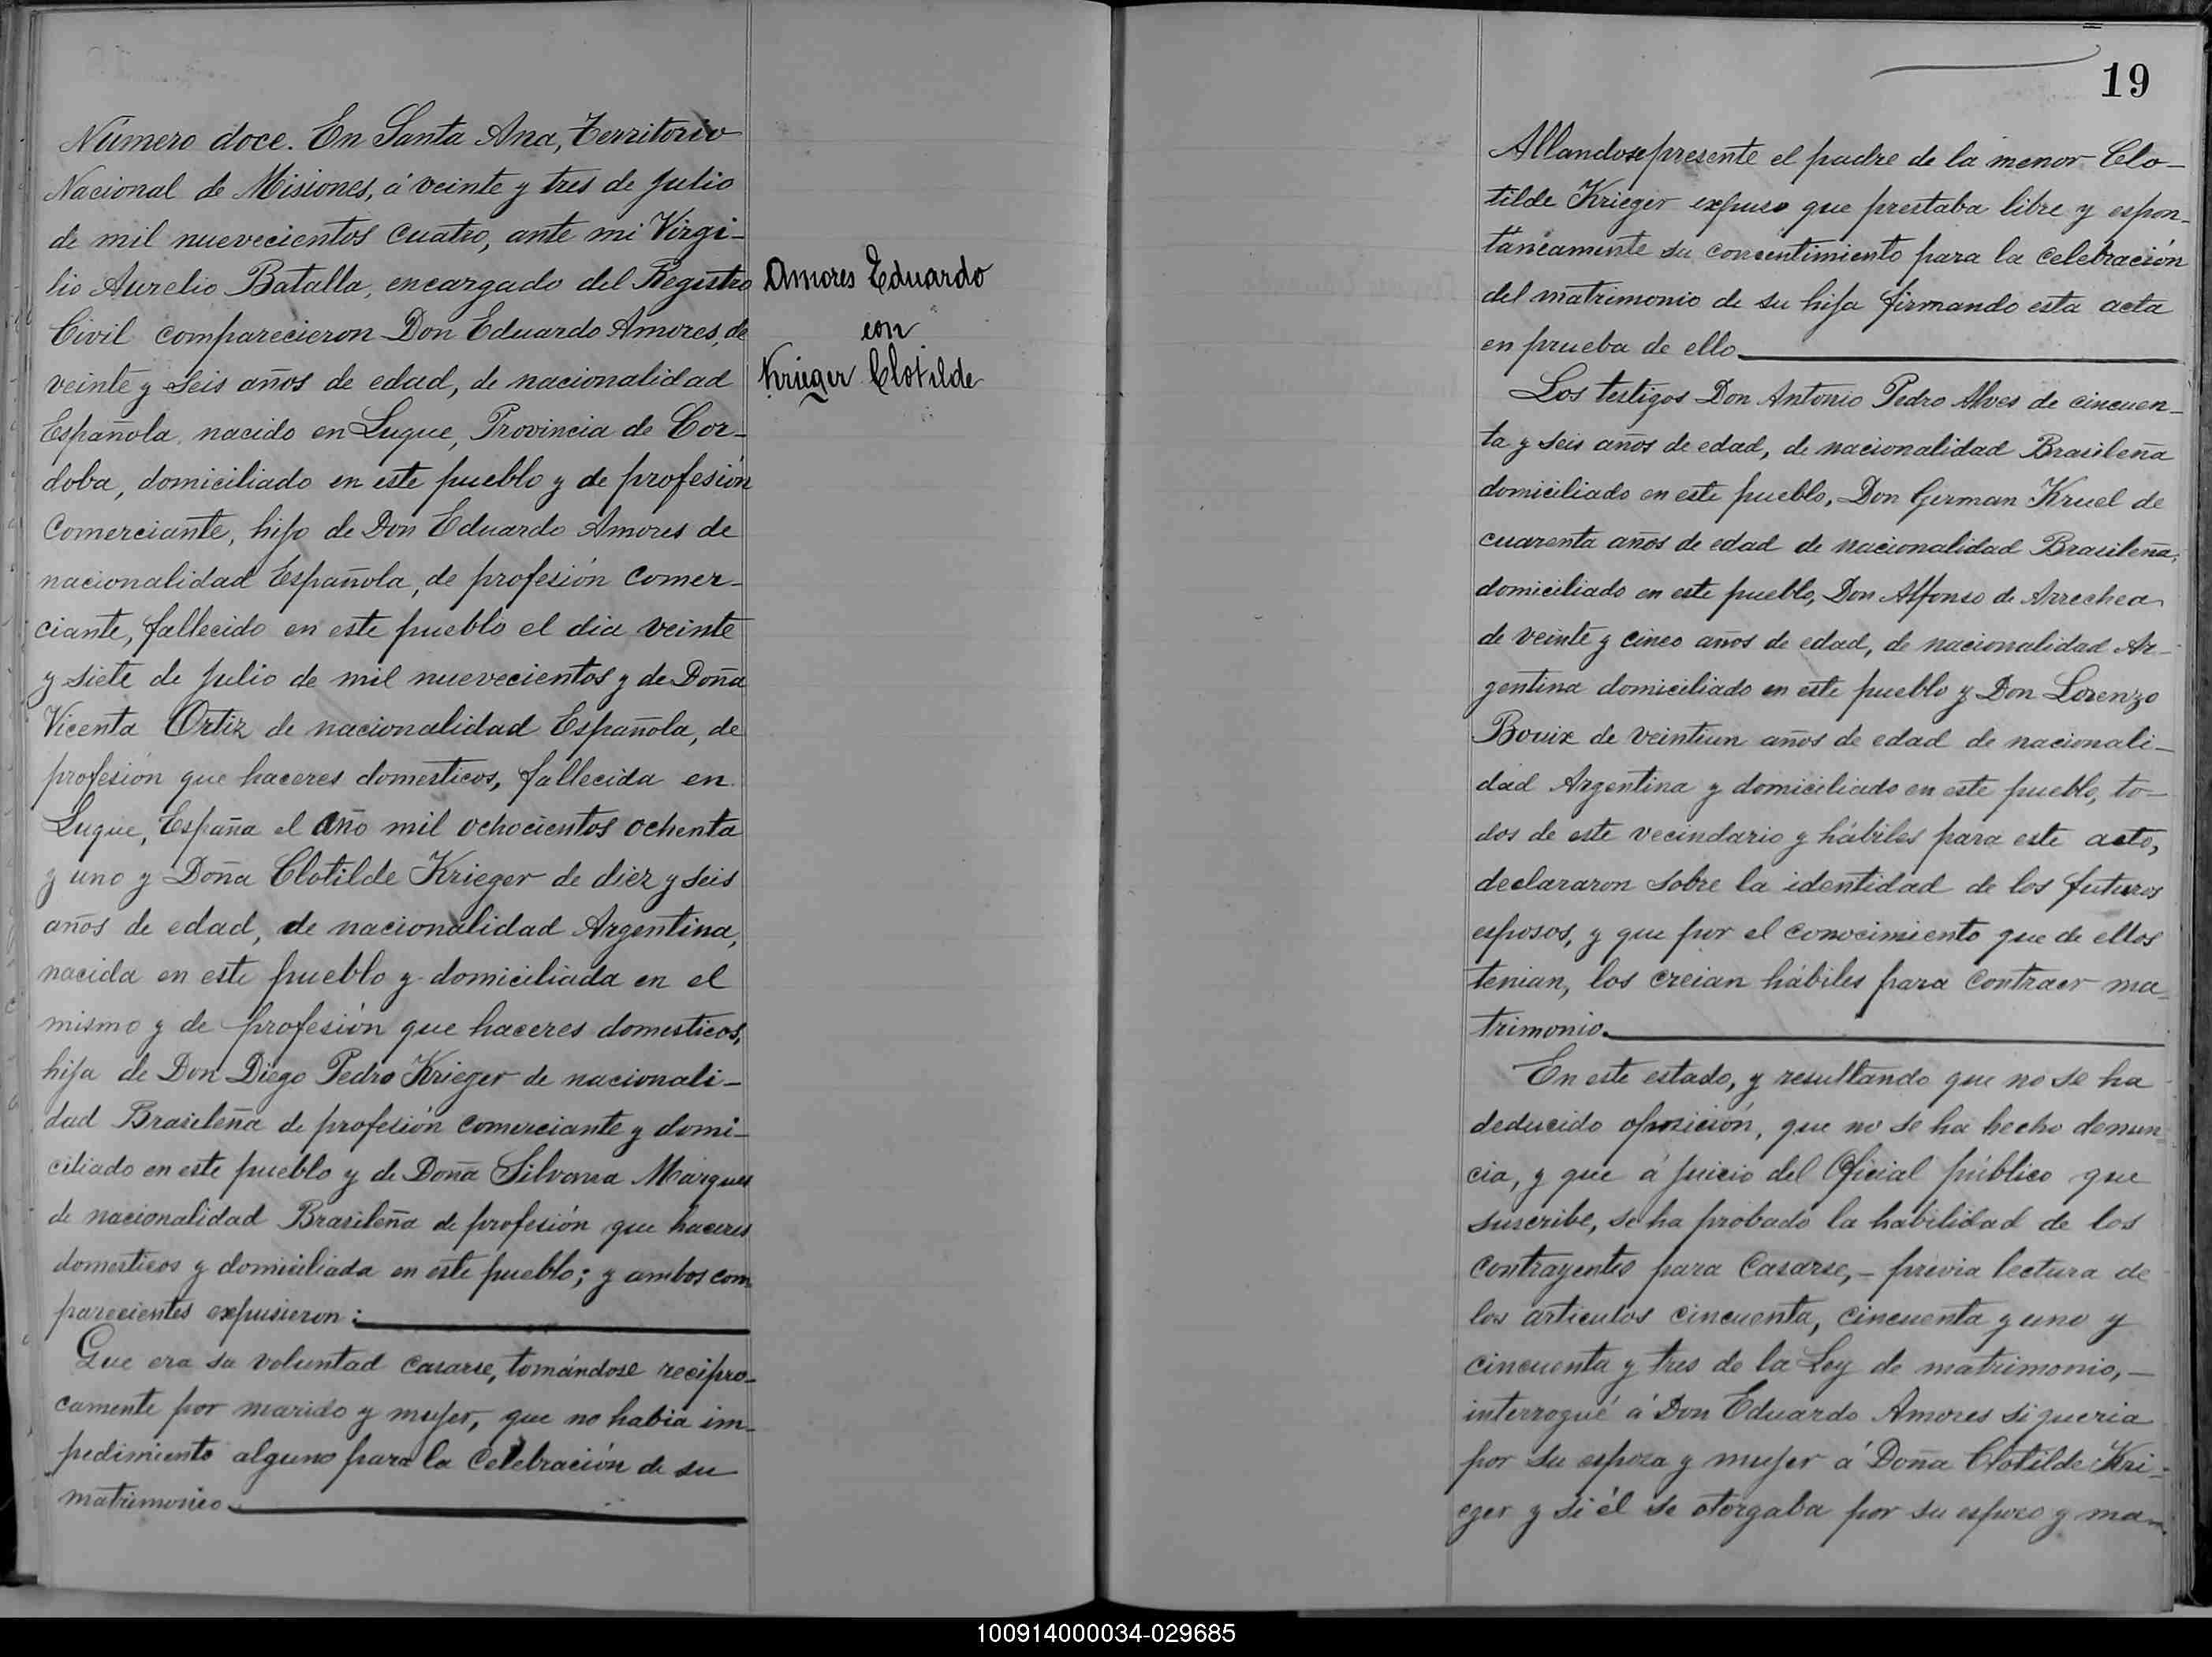 Número doce. En Santa Ana, Territorio
Nacional de Misiones, á veinte y tres de Julio
de mil nuevecientos cuatro, ante mi Virgi-
lio Aurelio Batalla, encargado del Registro
Civil comparecieron Don Eduardo Amores, de
veinte y seis años de edad, de nacionalidad
Española, nacido en Luque, Provincia de Cor-
doba, domiciliado en este pueblo y de profesión
Comerciante, hijo de Don Eduardo Amores de
nacionalidad Española, de profesión Comer-
ciante, fallecido en este pueblo el dia veinte
y siete de Julio de mil nuevecientos y de Doña
Vicenta Ortiz de nacionalidad Española, de
profesión que haceres domesticos, fallecida en
Luque, España el año mil ochocientos ochenta
y uno y Doña Clotilde Krieger de diez y seis
años de edad, de nacionalidad Argentina,
nacida en este pueblo y domiciliada en el
mismo y de profesión que haceres domesticos,
hija de Don Diego Pedro Krieger de nacionali-
dad Brasileña de profesión comerciante y domi-
ciliado en este pueblo y de Doña Silvana Marques
de nacionalidad Brasileña de profesión que haceres
domesticos y domiciliada en este pueblo; y ambos com-
parecientes expusieron:
Que era su voluntad casarse, tomándose recipro-
camente por marido y mujer, que no habia im-
pedimiento alguno para la Celebración de su
matrimonio
Amores Eduardo
con
Krieger Clotilde
19
Allandose presente el padre de la menor Clo-
tilde Krieger expuso que prestaba libre y espon-
táneamente su consentimiento para la celebración
del matrimonio de su hija firmando esta acta
en prueba de ello
Los testigos Don Antonio Pedro Alves de cincuen-
ta y seis años de edad, de nacionalidad Brasileña
domiciliado en este pueblo, Don German Kruel de
cuarenta años de edad de nacionalidad Brasileña,
domiciliado en este pueblo, Don Alfonso de Arrechea
de veinte y cinco años de edad, de nacionalidad Ar-
gentina domiciliado en este pueblo y Don Lorenzo
Bouix de veintiun años de edad de nacionali-
dad Argentina y domiciliado en este pueblo, to-
dos de este vecindario y hábiles para este acto,
declararon sobre la identidad de los futuros
esposos, y que por el conocimiento que de ellos
tenian, los creian hábiles para contraer ma-
trimonio.
En este estado, y resultando que no se ha
deducido oposición, que no se ha hecho denun-
cia, y que á juicio del Oficial público que
suscribe, se ha probado la habilidad de los
contrayentes para Casarse,- previa lectura de
los articulos cincuenta, cincuenta y uno y
cincuenta y tres de la Ley de matrimonio,-
interrogué á Don Eduardo Amores si queria
por su espoza y mujer á Doña Clotilde Kri-
eger y si él se otorgaba por su espozo y ma-
100914000034-029685